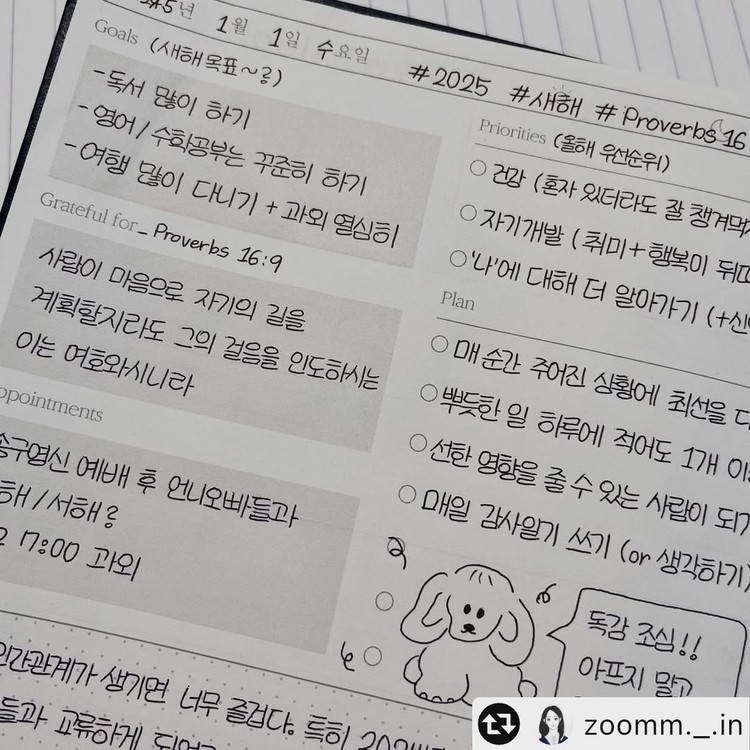 년 1월 1일 수요일
#2025 #새해 #Proverbs 16
Goals (새해목표~?)
-독서 많이 하기
-영어/수학공부는 꾸준히 하기
-여행 많이 다니기 + 과외 열심히
Grateful for_ Proverbs 16:9
사람이 마음으로 자기의 길을
계획할지라도 그의 걸음을 인도하시는
이는 여호와시니라
ppointments
송구영신 예배 후 언니오빠들과
해/서해?
7:00 과외
Priorities (올해 우선순위)
건강 (혼자 있더라도 잘 챙겨먹
자기개발 (취미+행복이 뒤따
'나'에 대해 더 알아가기 (+신
Plan
매 순간 주어진 상황에 최선을 다
뿌듯한 일 하루에 적어도 1개 이
선한 영향을 줄 수 있는 사람이 되기
매일 감사일기 쓰기 (or 생각하기)
독감 조심!!
아프지 말고
인간관계가 생기면 너무 즐겁다. 특히
들과 교류하게
zoomm._.in